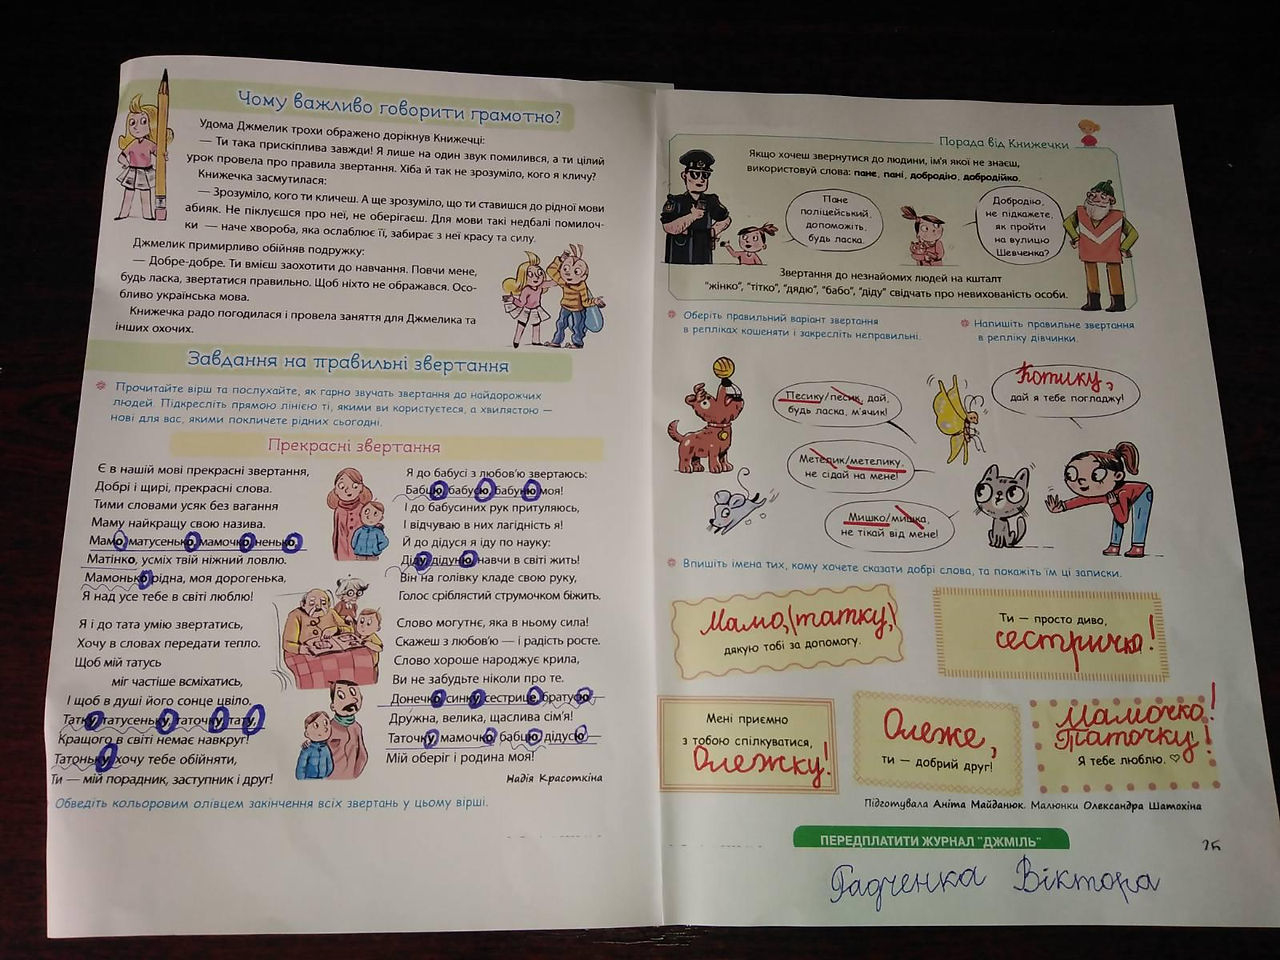 Чому важливо говорити грамотно?
Удома Джмелик трохи ображено дорікнув Книжечці:
— Ти така прискіплива завжди! Я лише на один звук помилився, а ти цілий
урок провела про правила звертання. Хіба й так не зрозуміло, кого я кличу?
Книжечка засмутилася:
— Зрозуміло, кого ти кличеш. А ще зрозуміло, що ти ставишся до рідної мови
абияк. Не піклуєшся про неї, не оберігаєш. Для мови такі недбалі помилоч-
ки — наче хвороба, яка ослаблює її, забирає з неї красу та силу.
Джмелик примирливо обійняв подружку:
— Добре-добре. Ти вмієш заохотити до навчання. Повчи мене,
будь ласка, звертатися правильно. Щоб ніхто не ображався. Осо-
бливо українська мова.
Книжечка радо погодилася і провела заняття для Джмелика та
інших охочих.
Завдання на правильні звертання
Прочитайте вірш та послухайте, як гарно звучать звертання до найдорожчих
людей. Підкресліть прямою лінією ті, якими ви користуєтеся, а хвилястою —
нові для вас, якими покличете рідних сьогодні.
Прекрасні звертання
Є в нашій мові прекрасні звертання,
Добрі і щирі, прекрасні слова.
Тими словами усяк без вагання
Маму найкращу свою назива.
Мамо, матусенько, мамочко, ненько,
Матінко, усміх твій ніжний ловлю.
Мамонько рідна, моя дорогенька,
Я над усе тебе в світі люблю!
Я і до тата умію звертатись,
Хочу в словах передати тепло.
Щоб мій татусь
міг частіше всміхатись,
І щоб в душі його сонце цвіло.
Татку, татусеньку, таточку, тату,
Кращого в світі немає навкруг!
Татоньку, хочу тебе обійняти,
Ти — мій порадник, заступник і друг!
Я до бабусі з любов'ю звертаюсь:
Бабцю, бабусю, бабуню моя!
І до бабусиних рук притуляюсь,
І відчуваю в них лагідність я!
Й до дідуся я іду по науку:
Діду, дідуню, навчи в світі жить!
Він на голівку кладе свою руку,
Голос сріблястий струмочком біжить.
Слово могутнє, яка в ньому сила!
Скажеш з любов'ю — і радість росте.
Слово хороше народжує крила,
Ви не забудьте ніколи про те.
Донечко, синку, сестрице, братусю,
Дружна, велика, щаслива сім'я!
Таточку, мамочко, бабцю, дідусю,
Мій оберіг і родина моя!
Надія Красоткіна
Обведіть кольоровим олівцем закінчення всіх звертань у цьому вірші.
Порада від Книжечки
Якщо хочеш звернутися до людини, ім'я якої не знаєш,
використовуй слова: пане, пані, добродію, добродійко.
Пане
поліцейський,
допоможіть,
будь ласка.
Добродію,
не підкажете,
як пройти
на вулицю
Шевченка?
Звертання до незнайомих людей на кшталт
"жінко", "тітко", "дядю", "бабо", "діду" свідчать про невихованість особи.
Оберіть правильний варіант звертання
в репліках кошеняти і закресліть неправильні.
Напишіть правильне звертання
в репліку дівчинки.
Песику/песик, дай,
будь ласка, м'ячик!
Метелик/метелику,
не сідай на мене!
Мишко/мишка,
не тікай від мене!
Котику,
дай я тебе погладжу!
Впишіть імена тих, кому хочете сказати добрі слова, та покажіть їм ці записки.
Мамо, татку,
дякую тобі за допомогу.
Ти — просто диво,
сестричко!
Мені приємно
з тобою спілкуватися,
Олежку!
Олеже,
ти — добрий друг!
Мамочко!
Таточку!
Я тебе люблю. ♡
Підготувала Аніта Майданюк. Малюнки Олександра Шатохіна
ПЕРЕДПЛАТИТИ ЖУРНАЛ "ДЖМІЛЬ"
Радченка Віктора